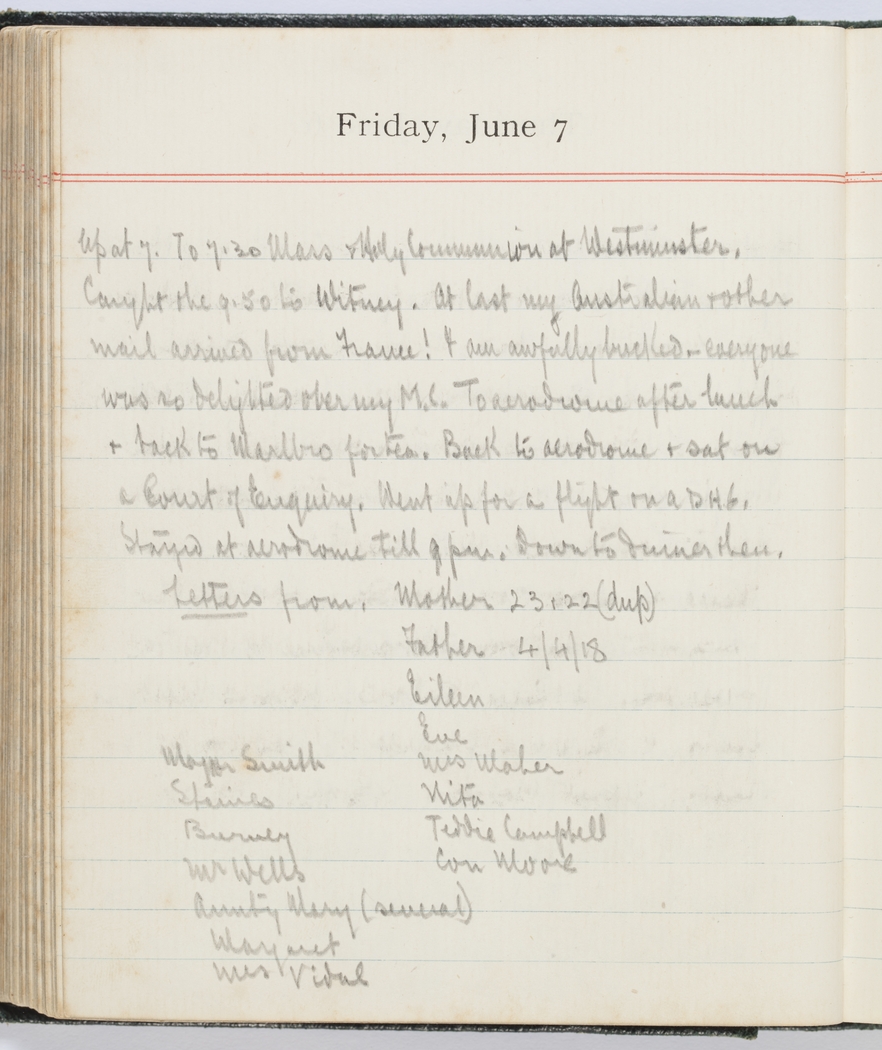 Friday, June 7
Up at 7. To 7.30 Mass & Holy Communion at Westminster.
Caught the 9.50 to Witney. At last my Australian & other
mail arrived from France! I am awfully bucked - everyone
was so delighted over my M.C. To aerodrome after lunch
& back to Marlbro for tea. Back to aerodrome & sat on
a Court of Enquiry. Went up for a flight on a DH6.
Stayed at aerodrome till 9 pm. Down to dinner then.
Letters from. Mother 23, 22 (dup)
Father 4/4/18
Eileen
Eve
Major Smith Mrs Maher
Staines Nita
Burney Teddie Campbell
Mr Wells Con Moore
Aunty Mary (several)
Margaret
Mrs Vidal